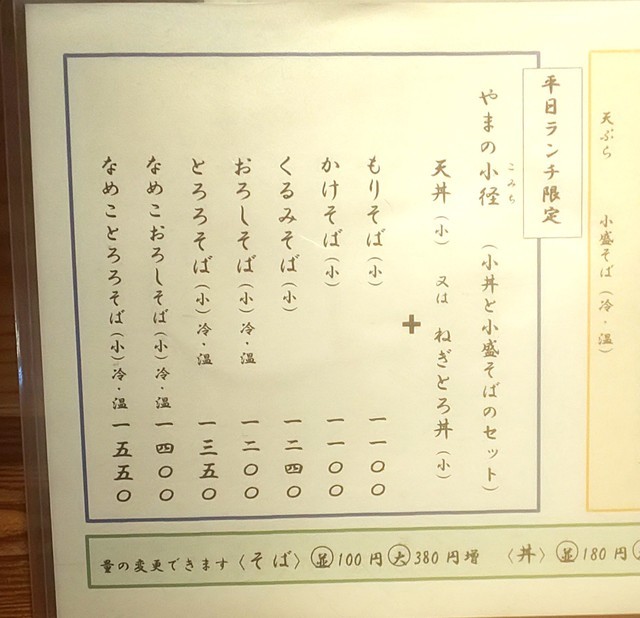 天ぷら 小盛そば（冷・温）
平日ランチ限定
やまの小径（小丼と小盛そばのセット）
こみち
天丼（小） 又は ねぎとろ丼（小）
+
もりそば（小） 一一〇〇
かけそば（小） 一一〇〇
くるみそば（小） 一二四〇
おろしそば（小）冷・温 一二〇〇
とろろそば（小）冷・温 一三五〇
なめこおろしそば（小）冷・温 一四〇〇
なめことろろそば（小）冷・温 一五五〇
量の変更できます〈そば〉並100円 大380円増 〈丼〉並180円